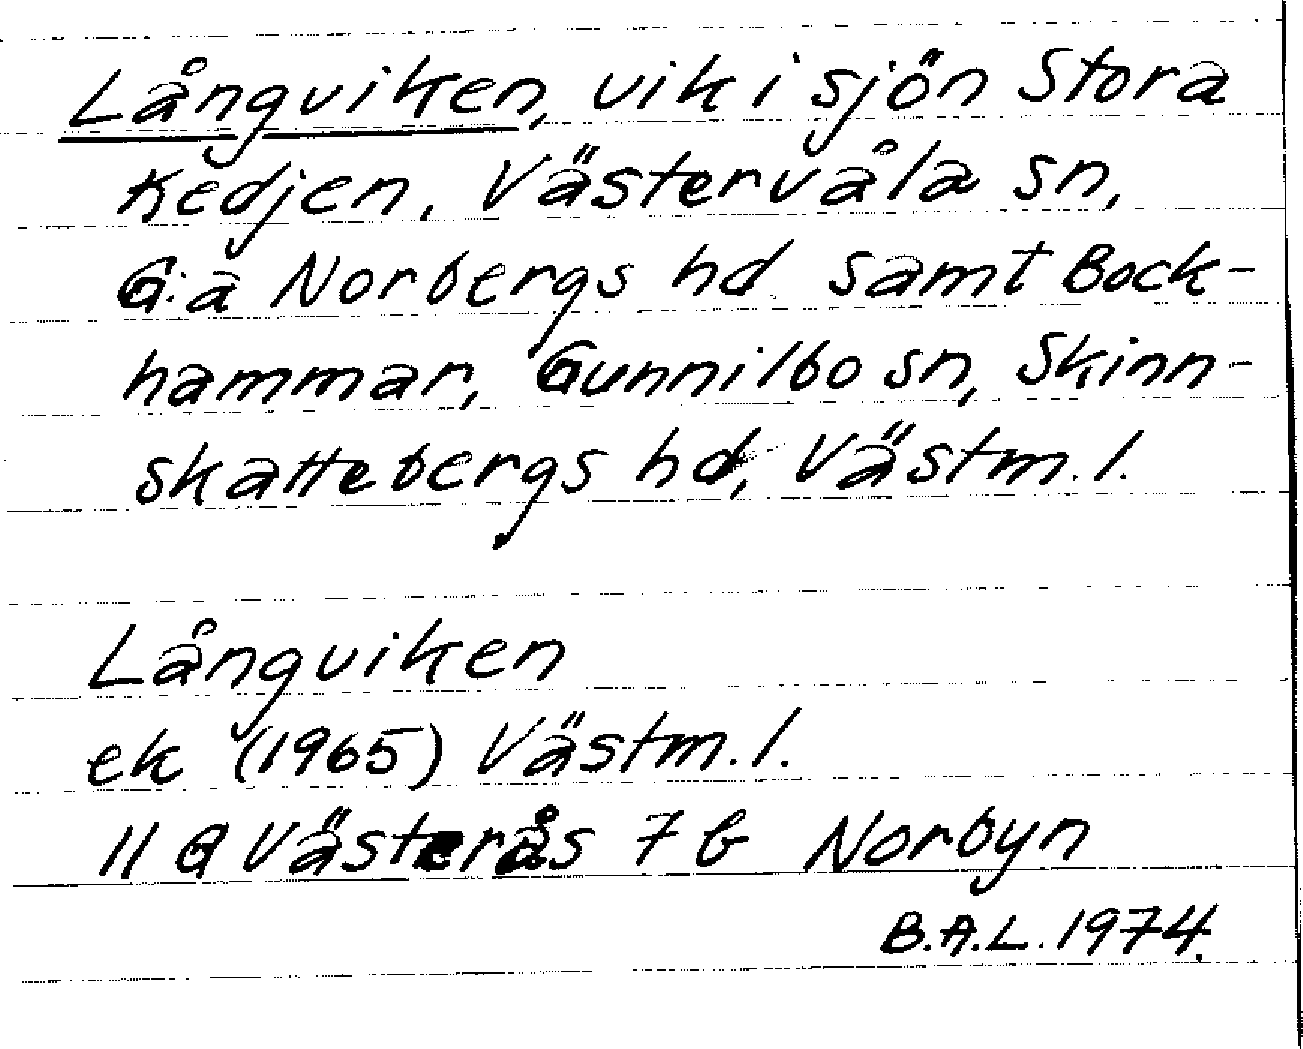 Långviken, vik i sjön Stora
Kedjen, Västervåla sn,
G:a Norbergs hd samt Bock-
hammar, Gunnilbo sn, Skinn-
skattebergs hd, Västm. l.
Långviken
ek (1965) Västm. l.
11 G Västerås 7 b Norbyn
B.A.L. 1974.